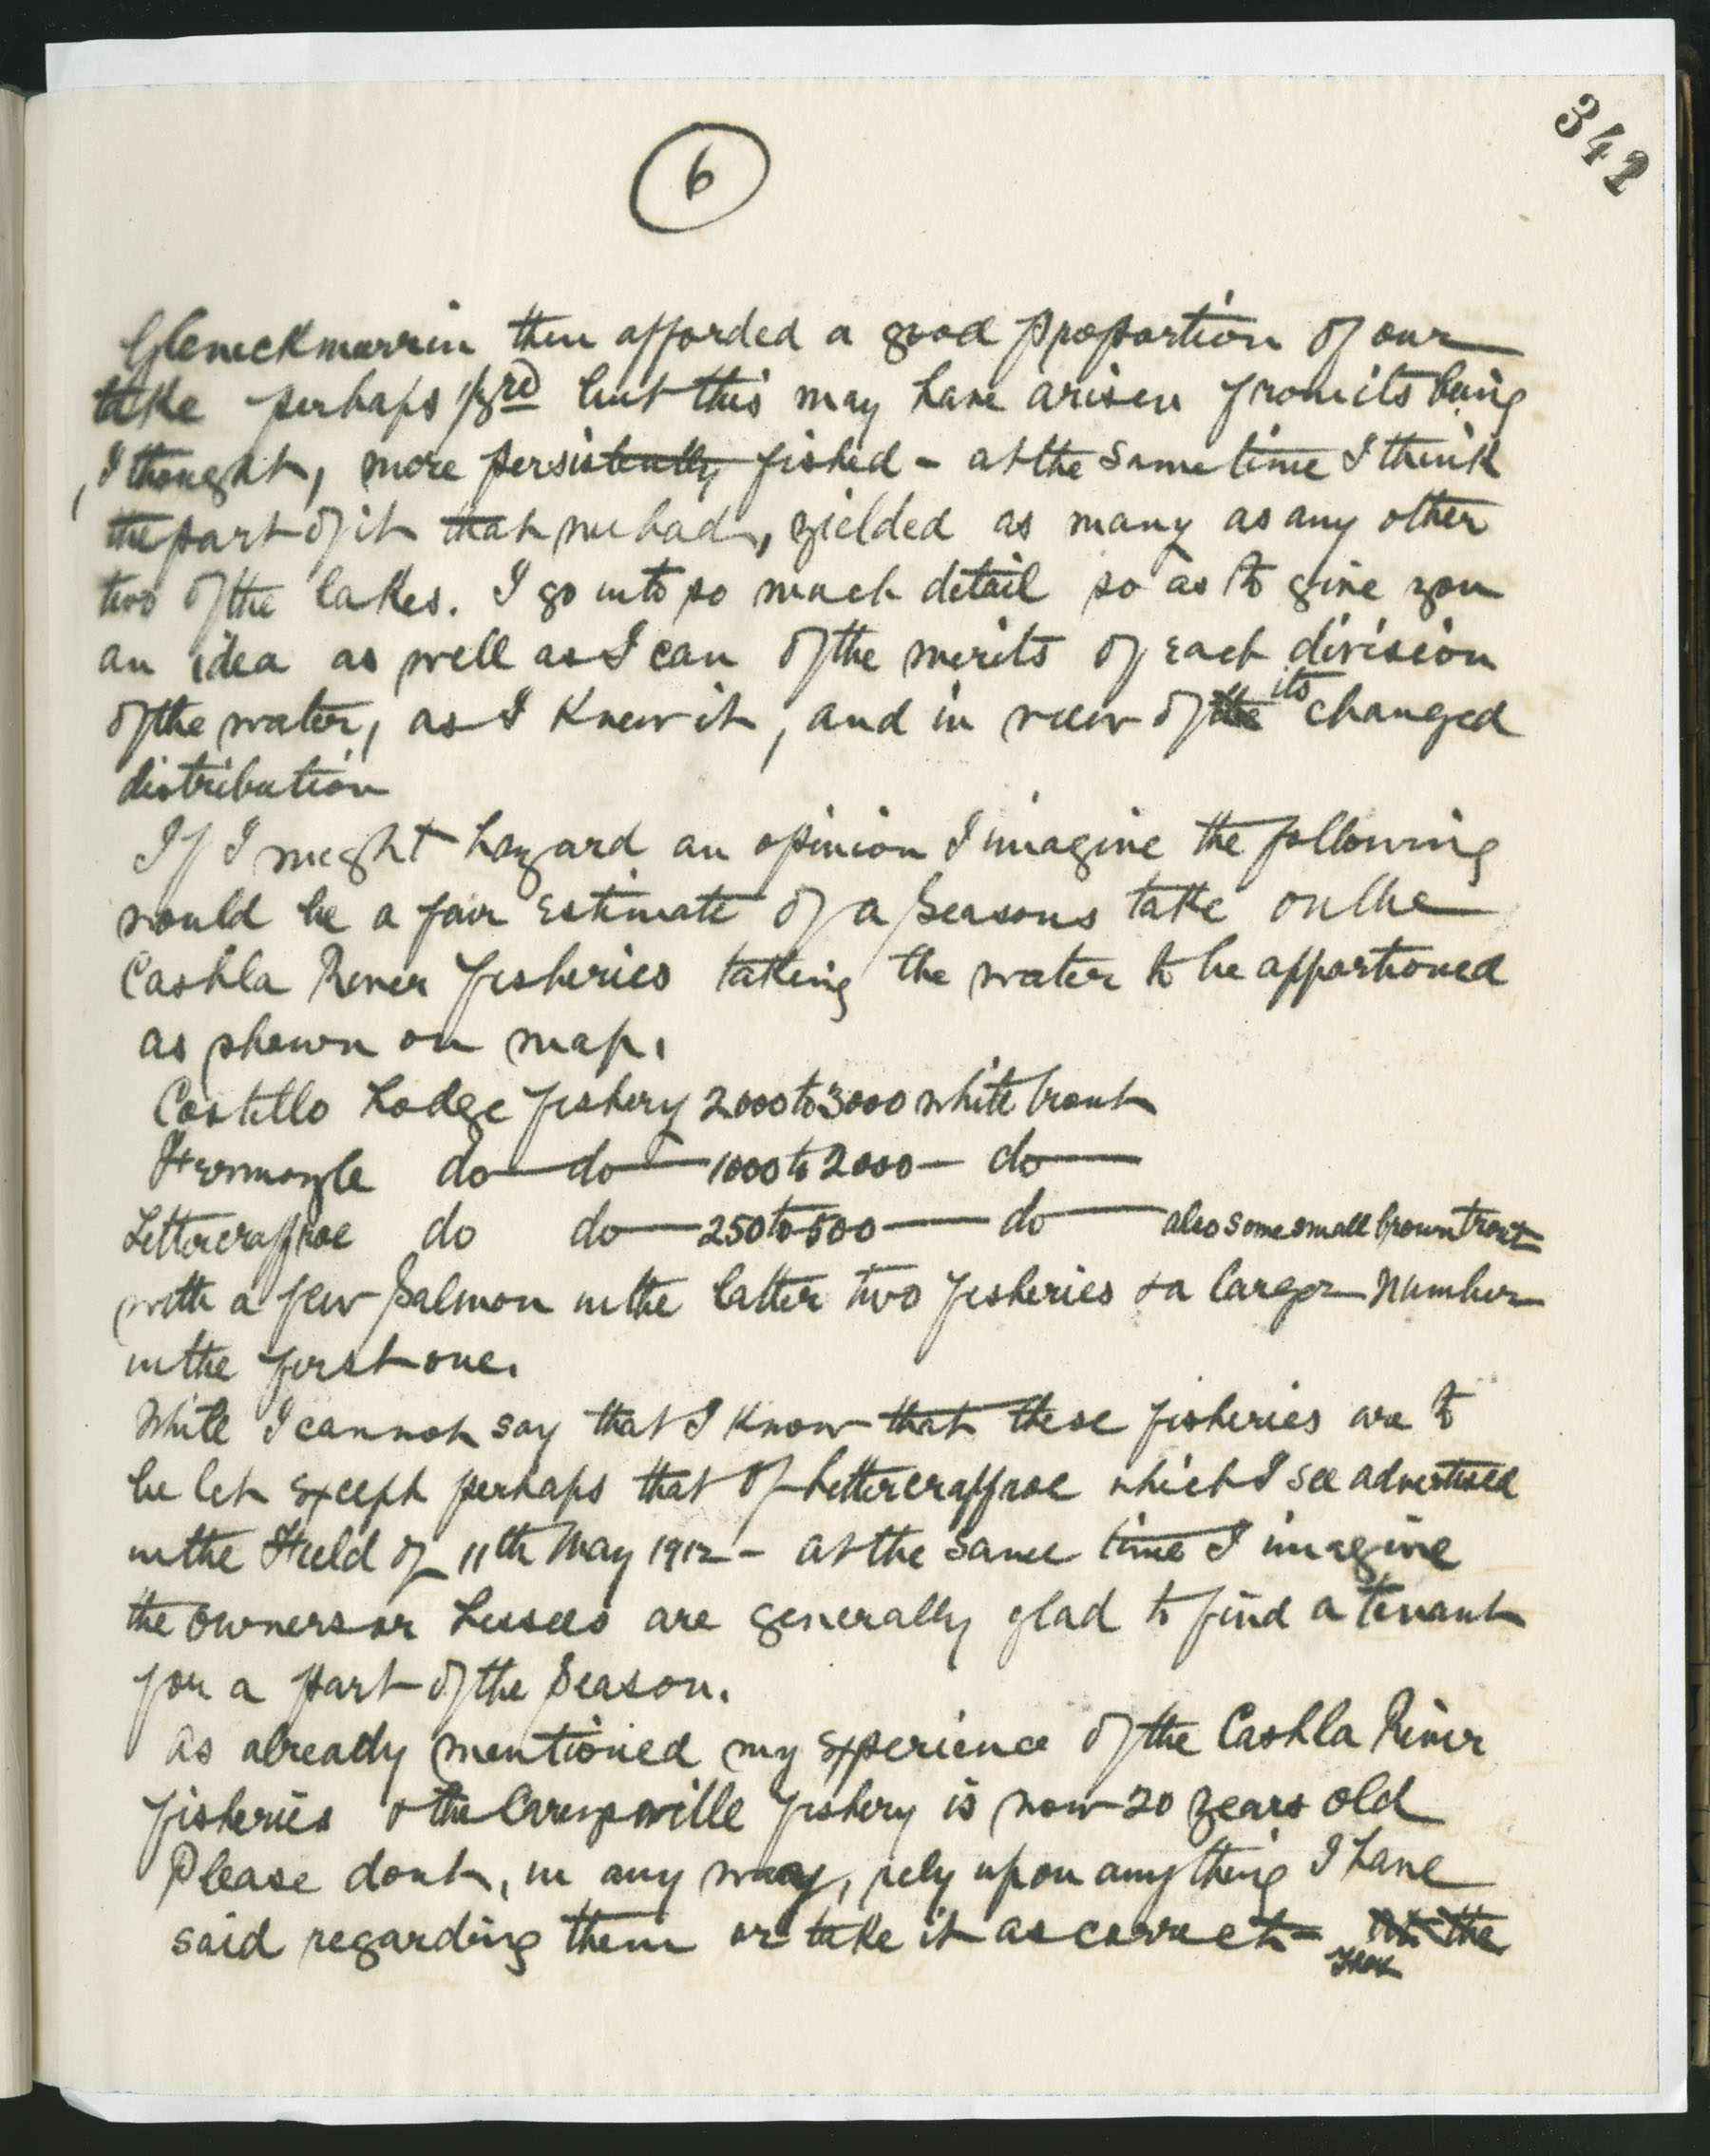 342
6
Glenickmurrin then afforded a good proportion of our
take perhaps 1/3rd but this may have arisen from its being
, I thought, more persistently fished - at the same time I think
the part of it that we had, yielded as many as any other
two of the lakes. I go into so much detail so as to give you
an idea as well as I can of the merits of each division
of the water, as I knew it, and in view of the its changed
distribution
If I might hazard an opinion I imagine the following
would be a fair estimate of a Seasons take on the
Cashla River fisheries taking the water to be apportioned
as shewn on map.
Costello Lodge fishery 2000 to 3000 white trout
Fermoyle do do 1000 to 2000 - do
Lettercraffroe do do 250 to 500 do also some small brown trout
with a few Salmon in the latter two fisheries & a larger number
in the first one.
While I cannot say that I know that these fisheries are to
be let except perhaps that of Lettercraffroe which I see advertised
in the Field of 11th May 1912 - at the same time I imagine
the owners or Lessees are generally glad to find a tenant
for a part of the Season.
As already mentioned my experience of the Cashla River
fisheries & the fishery is now 20 years old
Please dont, in any way, rely upon anything I have
said regarding them or take it as correct - the